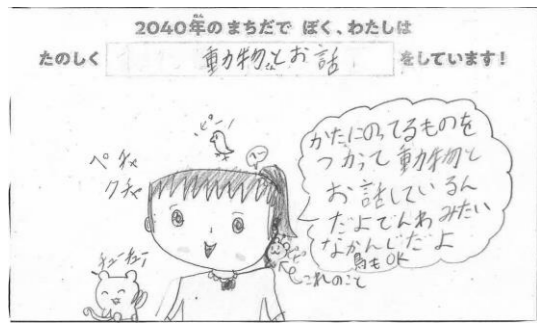 2040年のまちだで ぼく、わたしは
たのしく 動物とお話 をしています!
ピー!
ペチャ
クチャ
チューチュー
かたにのってるものを
つかって動物と
お話しているん
だよでんわみたい
なかんじだよ
鳥もOK
これのこと